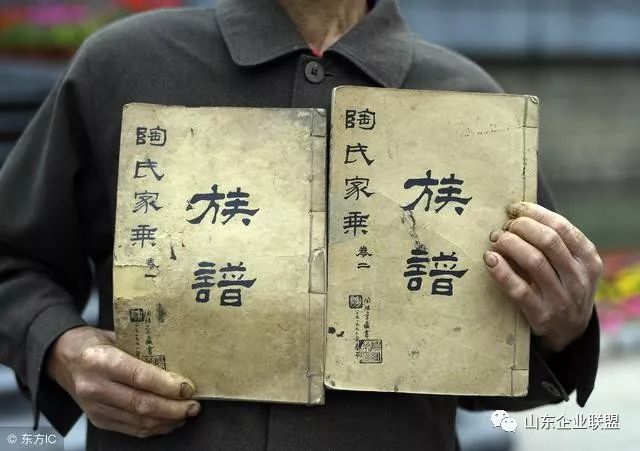 陶氏家乘
卷一
族譜
陶氏家乘
卷二
族譜
© 东方IC
山东企业联盟